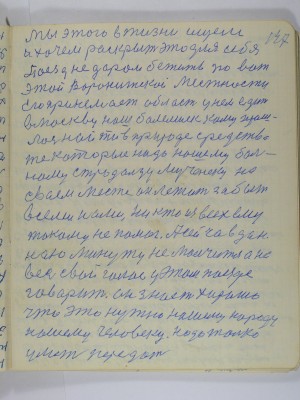 147
Мы этого в жизни ищем
и хочем раскрыть это для себя,
Поезд не даром бежит по вот
этой Воронежской местности
Сто принимает область у нем едит
в москву наш болеющему
лся найти в природе средства
те которые надо нашему бол-
ному стридающему человеку на
своем месте он лежит забыт
всеми нами, Никто из всех ему
такому не помог. А ей ча в дан
наю минуту не молчит а на
век свой голос у этом поезде
говарит. он знает хорошо
что это нужно нашему народу
нашему человеку. Надо только
умет передат